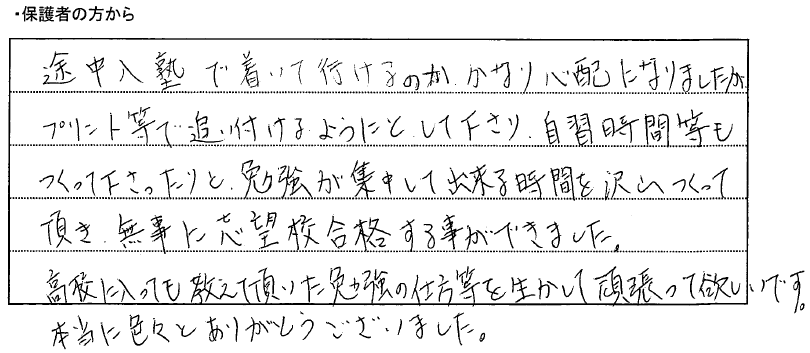 ・保護者の方から
途中入塾で着いて行けるのか、かなり心配になりましたが、
プリント等で追い付けるようにと、して下さり、自習時間等も
つくって下さったりと、勉強が集中して出来る時間を沢山つくって
頂き、無事に志望校合格する事ができました。
高校に入っても教えて頂いた勉強の仕方等を生かして頑張って欲しいです。
本当に色々とありがとうございました。